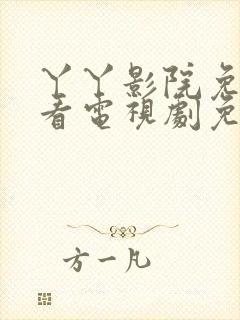 丫丫影院免
看电视剧免
方一凡